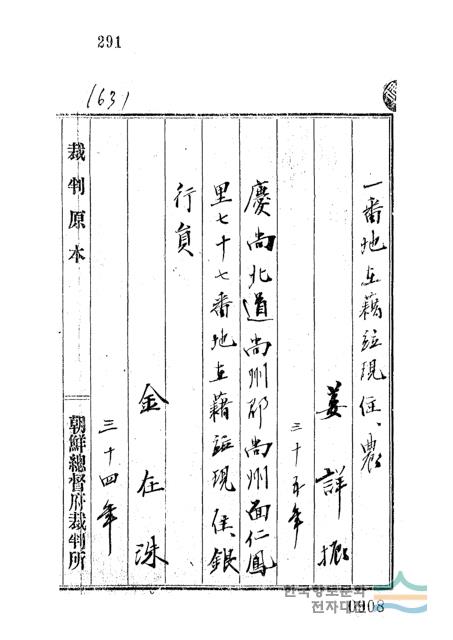 291
(63)
一番地在籍竝現住、農
姜詳振
三十五年
慶尙北道尙州郡尙州面仁鳳
里七十七番地在籍竝現住、銀
行員
金在洙
三十四年
裁判原本
朝鮮總督府裁判所
한국향토문화
전자대전
0908